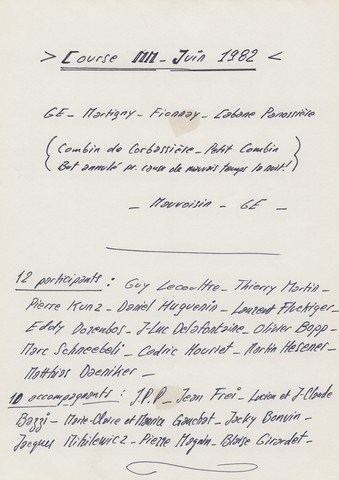 > Course MM - Juin 1982 <
GE - Martigny - Fionnay - Cabane Panossière
(Combin de Corbassière - Petit Combin
But annulé pr. cause de mauvais temps la nuit!)
- Mauvoisin - GE -
12 participants : Guy Lecoultre - Thierry Martin -
Pierre Kunz - Daniel Huguenin - Laurent Fluckiger -
Eddy Dozenbos - J-Luc Delafontaine - Olivier Bopp -
Marc Schneebeli - Cédric Houriet - Martin Hesener -
Matthias Daeniker -
10 accompagnants : J.P.P - Jean Frei - Lucien et J-Claude
Bazzi - Marie-Claire et Maurice Gauchat - Jacky Bonvin -
Jacques Mihilewicz - Pierre Magnin - Blaise Girardet -